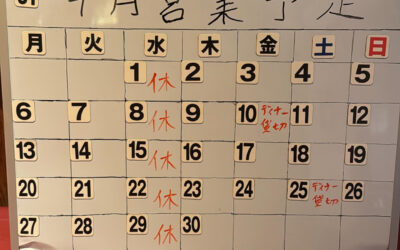 月営業予定
月 火 水 木 金 土 日
1 休 2 3 4 5
6 7 8 休 9 10 ディナー貸切 11 12
13 14 15 休 16 17 18 19
20 21 22 休 23 24 25 ディナー貸切 26
27 28 29 休 30